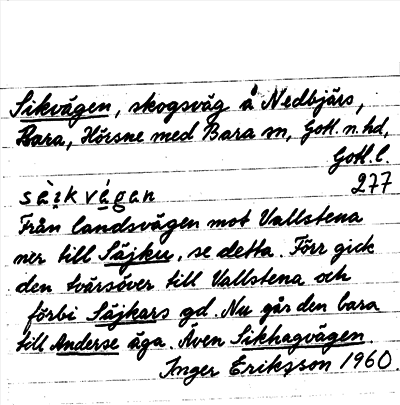 Sikvägen, skogsväg å Nedbjärs,
Bara, Hörsne med Bara sn, Gotl. n. hd,
Gotl. l.
277
säikvägan
Från landsvägen mot Vallstena
ner till Säjku, se detta. Förr gick
den tvärsöver till Vallstena och
förbi Säjkars gd. Nu går den bara
till Anderse äga. Även Sikhagvägen.
Inger Eriksson 1960.